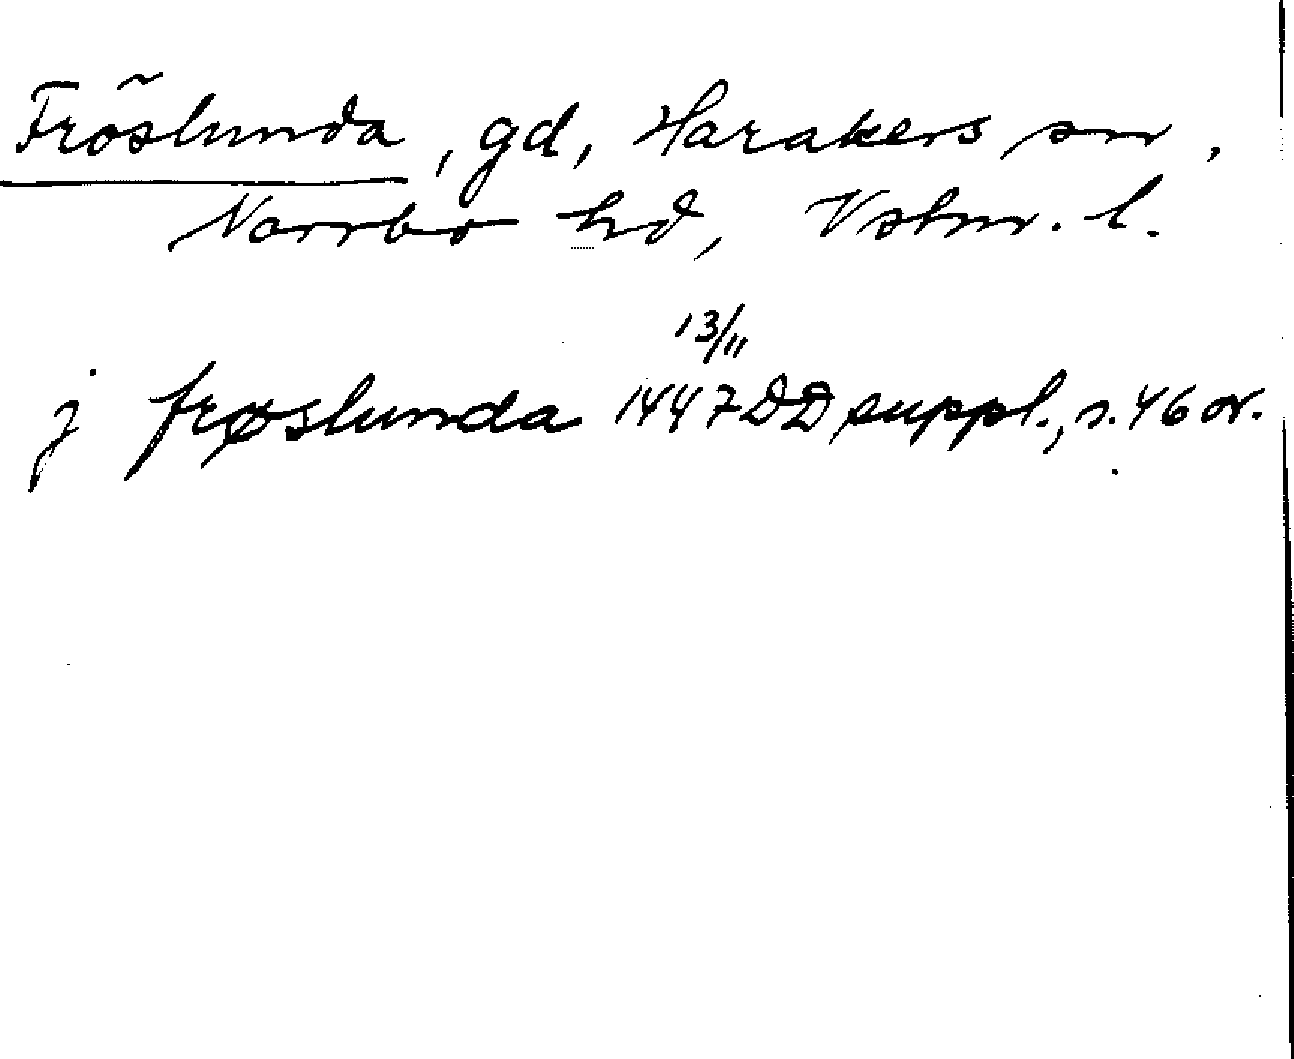 Fröslunda, gd, Harakers sn,
Norrbo hd, Vstm. l.
13/11
j frøslunda 1447 DD suppl., s. 46 or.